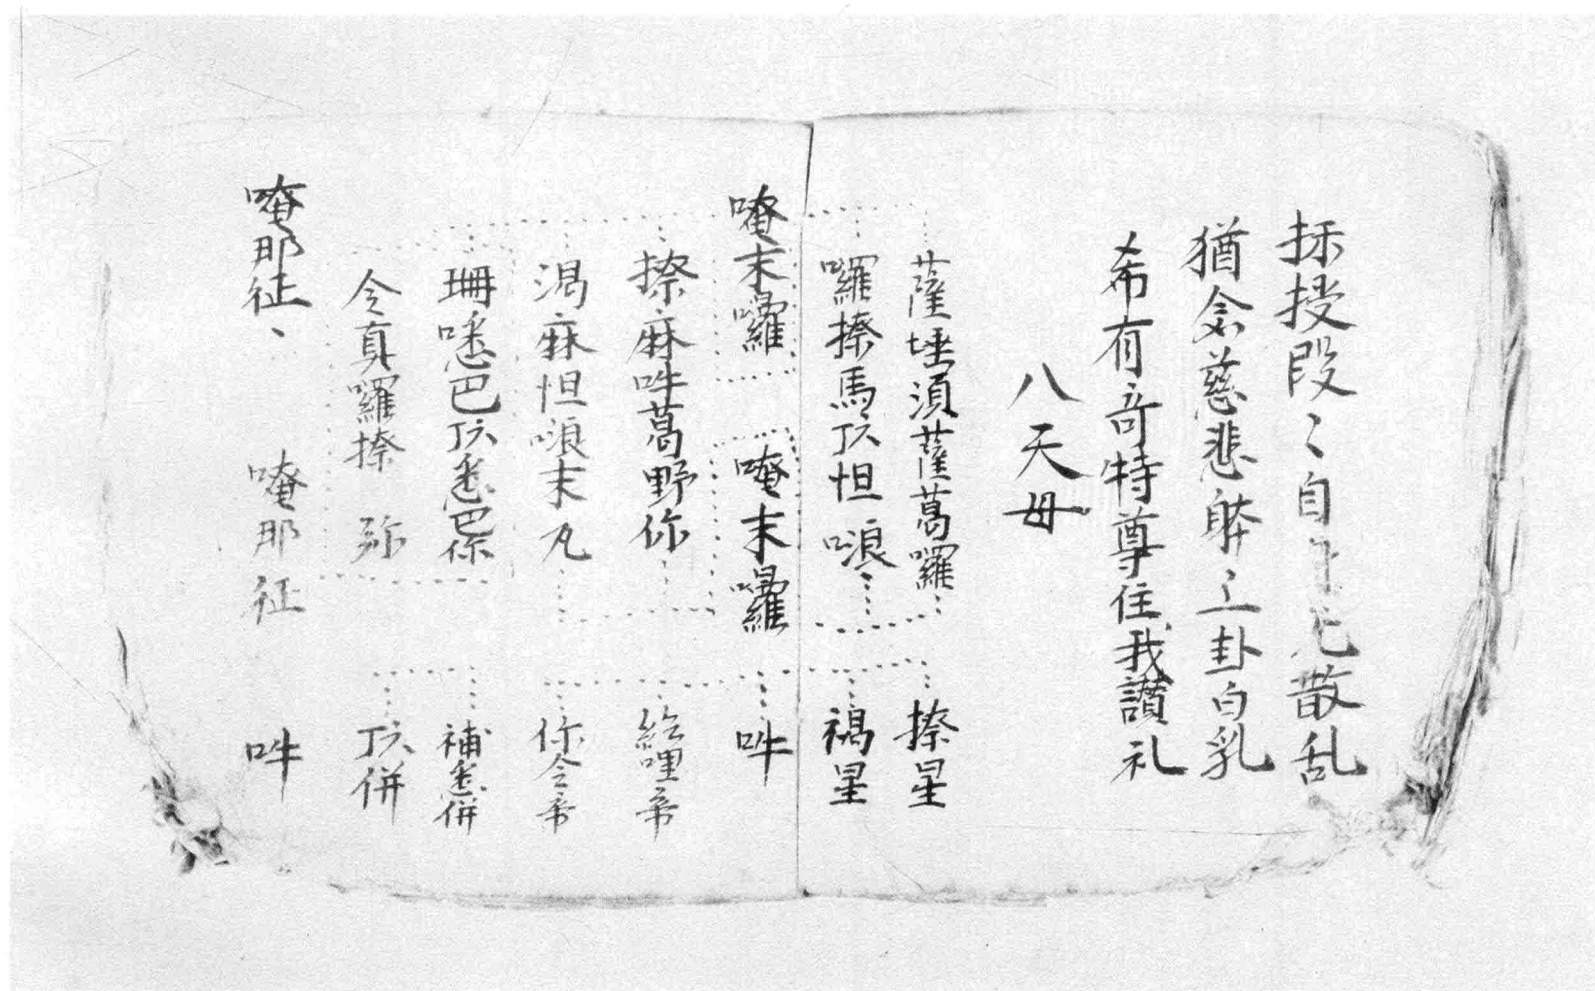 授段〻自散乱
猶念慈悲躰〻卦白乳
希有奇特尊住我讃礼
八天母
薩埵須薩葛囉 捺星
囉捺馬䫂怛㖫 褐星
唵末囉 唵末囉 吽
捺麻吽葛野你 紇哩帝
渴麻怛㖫末 你令帝
珊嚩巴 補併
令真囉捺 弥 併
唵那征、 唵那征 吽